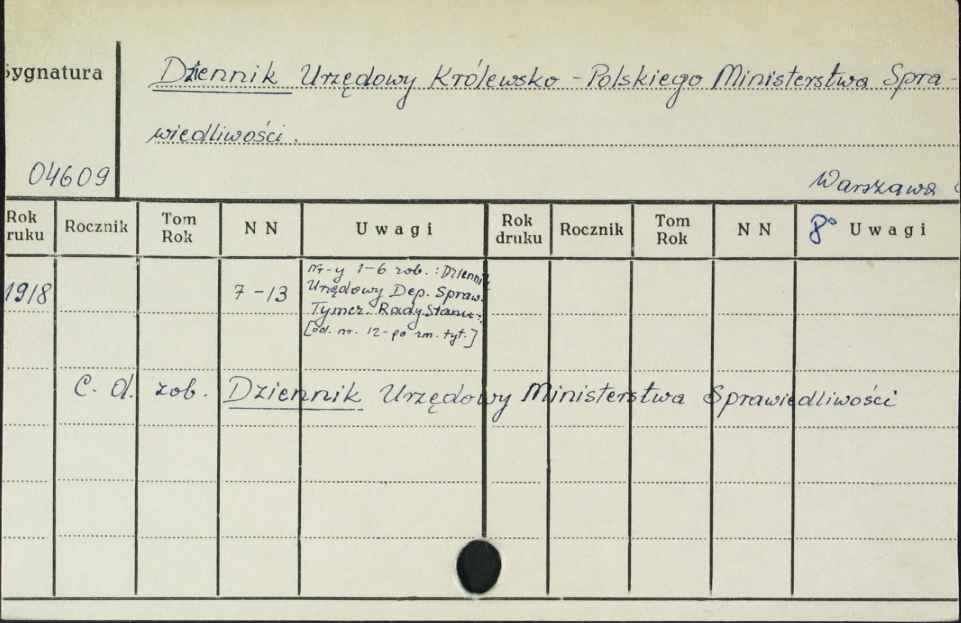 Sygnatura
Dziennik Urzędowy Królewsko-Polskiego Ministerstwa Spra-
wiedliwości.
04609
Warszawa
Rok druku Rocznik Tom Rok NN Uwagi Rok druku Rocznik Tom Rok NN 8° Uwagi
1918 7-13 Nr-y 1-6 zob.: Dziennik
Urzędowy Dep. Spraw.
Tymcz. Rady Stanu.
[od. nr. 12-po zm. tyt.]
C. d. zob. Dziennik Urzędowy Ministerstwa Sprawiedliwości